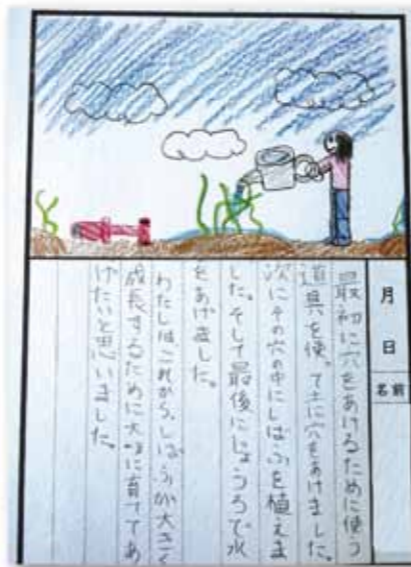 月　日
名前
最初に穴をあけるために使う
道具を使って土に穴をあけました。
次にその穴の中にしばふを植えま
した。そして最後にじょうろで水
をあげました。
わたしはこれから、しばふが大きく
成長するために大事に育ててあ
げたいと思いました。